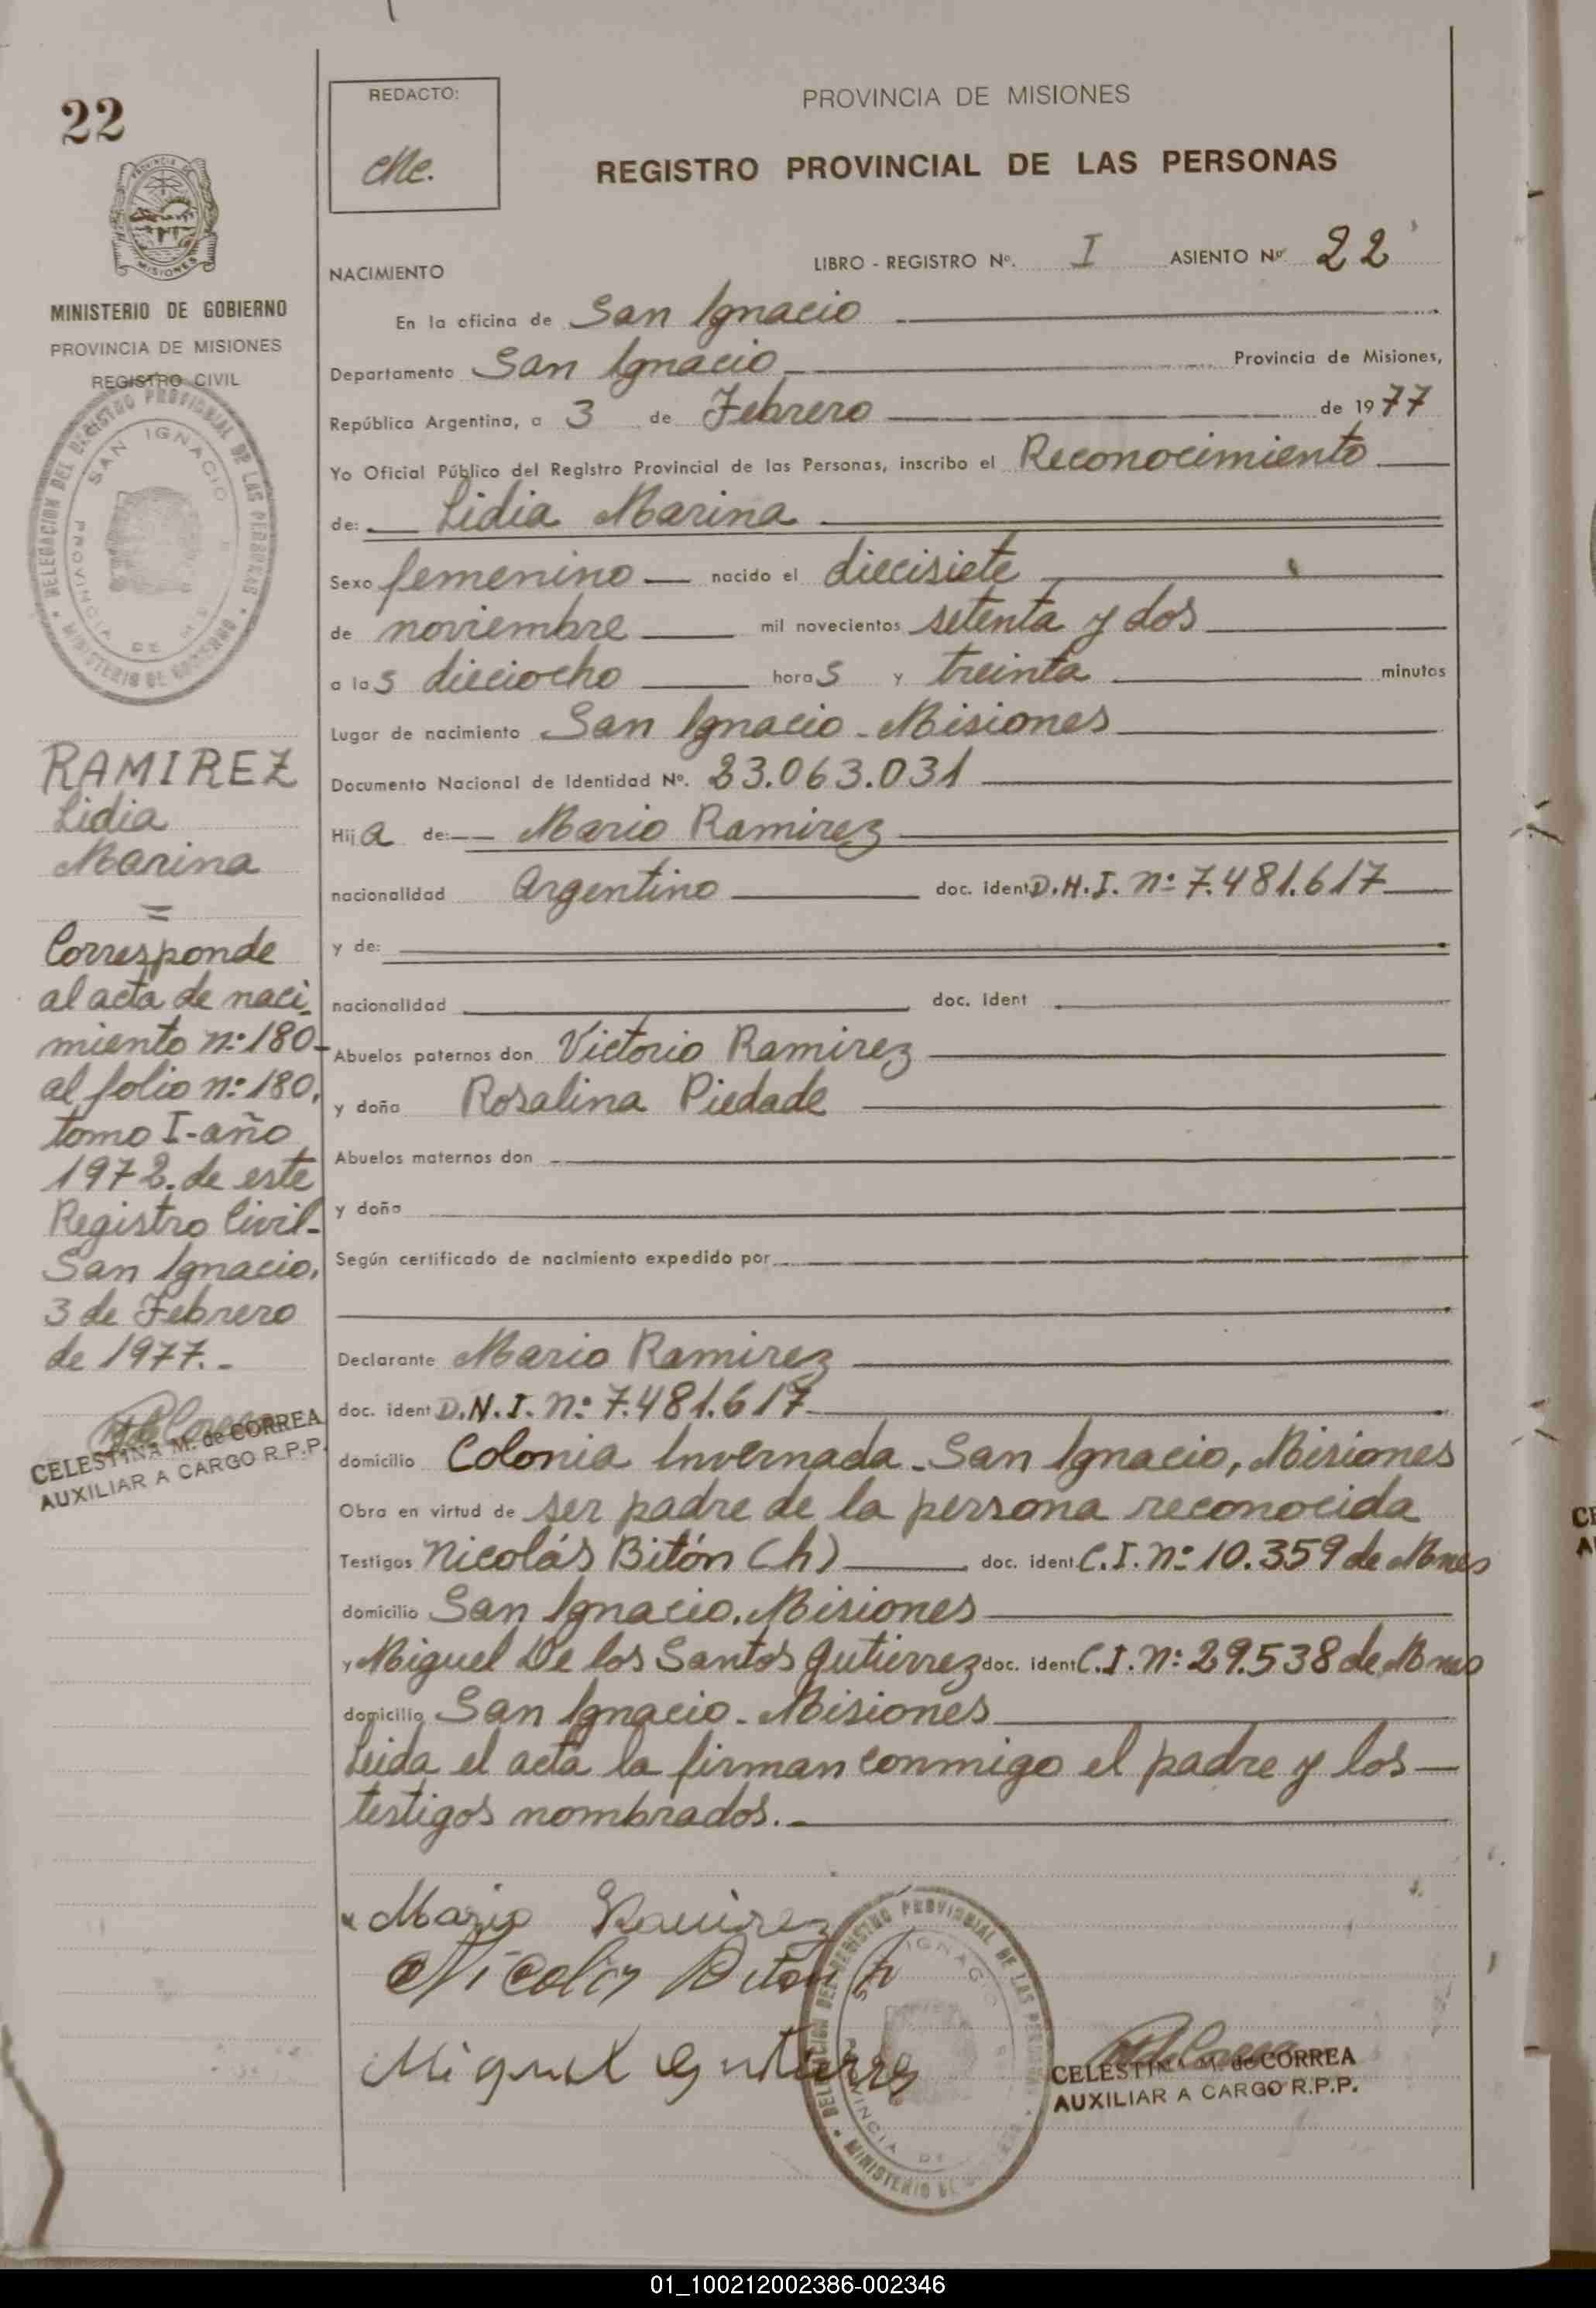 22
MINISTERIO DE GOBIERNO
PROVINCIA DE MISIONES
REGISTRO CIVIL
DELEGACION DEL REGISTRO PROVINCIAL DE LAS PERSONAS
SAN IGNACIO
PROVINCIA DE
MINISTERIO DE GOBIERNO
RAMIREZ
Lidia
Marina
=
Corresponde
al acta de naci_
miento n:180-
al folio n:180,
tomo I-año
1972.de este
Registro Civil-
San Ignacio,
3 de Febrero
de 1977.-
CELESTINA M. de CORREA
AUXILIAR A CARGO R.P.P.
REDACTO:
PROVINCIA DE MISIONES
REGISTRO PROVINCIAL DE LAS PERSONAS
NACIMIENTO LIBRO - REGISTRO Nº. I ASIENTO Nº 22
En la oficina de San Ignacio
Departamento San Ignacio Provincia de Misiones,
República Argentina, a 3 de Febrero de 1977
Yo Oficial Público del Registro Provincial de las Personas, inscribo el Reconocimiento
de: Lidia Marina
Sexo femenino nacido el diecisiete
de noviembre mil novecientos setenta y dos
a las dieciocho horas y treinta minutos
Lugar de nacimiento San Ignacio - Misiones
Documento Nacional de Identidad Nº. 23.063.031
Hija de: Mario Ramirez
nacionalidad Argentino doc. ident D.N.I. n: 7.481.617
y de:
nacionalidad doc. ident
Abuelos paternos don Victorio Ramirez
y doña Rosalina Piedade
Abuelos maternos don
y doña
Según certificado de nacimiento expedido por
Declarante Mario Ramirez
doc. ident D.N.I. n: 7.481.617
domicilio Colonia Invernada - San Ignacio, Misiones
Obra en virtud de ser padre de la persona reconocida
Testigos Nicolás Bitón (h) doc. ident. C.I. n: 10.359 de Mnes
domicilio San Ignacio. Misiones
y Miguel De los Santos Gutierrez doc. ident C.I. n: 29.538 de Mnes
domicilio San Ignacio - Misiones
Leida el acta la firman conmigo el padre y los
testigos nombrados.-
Mario Ramirez
Nicolás Bitón h
Miguel Gutierrez
DELEGACION DEL REGISTRO PROVINCIAL DE LAS PERSONAS
SAN IGNACIO
PROVINCIA DE
MINISTERIO DE
CELESTINA M. de CORREA
AUXILIAR A CARGO R.P.P.
01_100212002386-002346